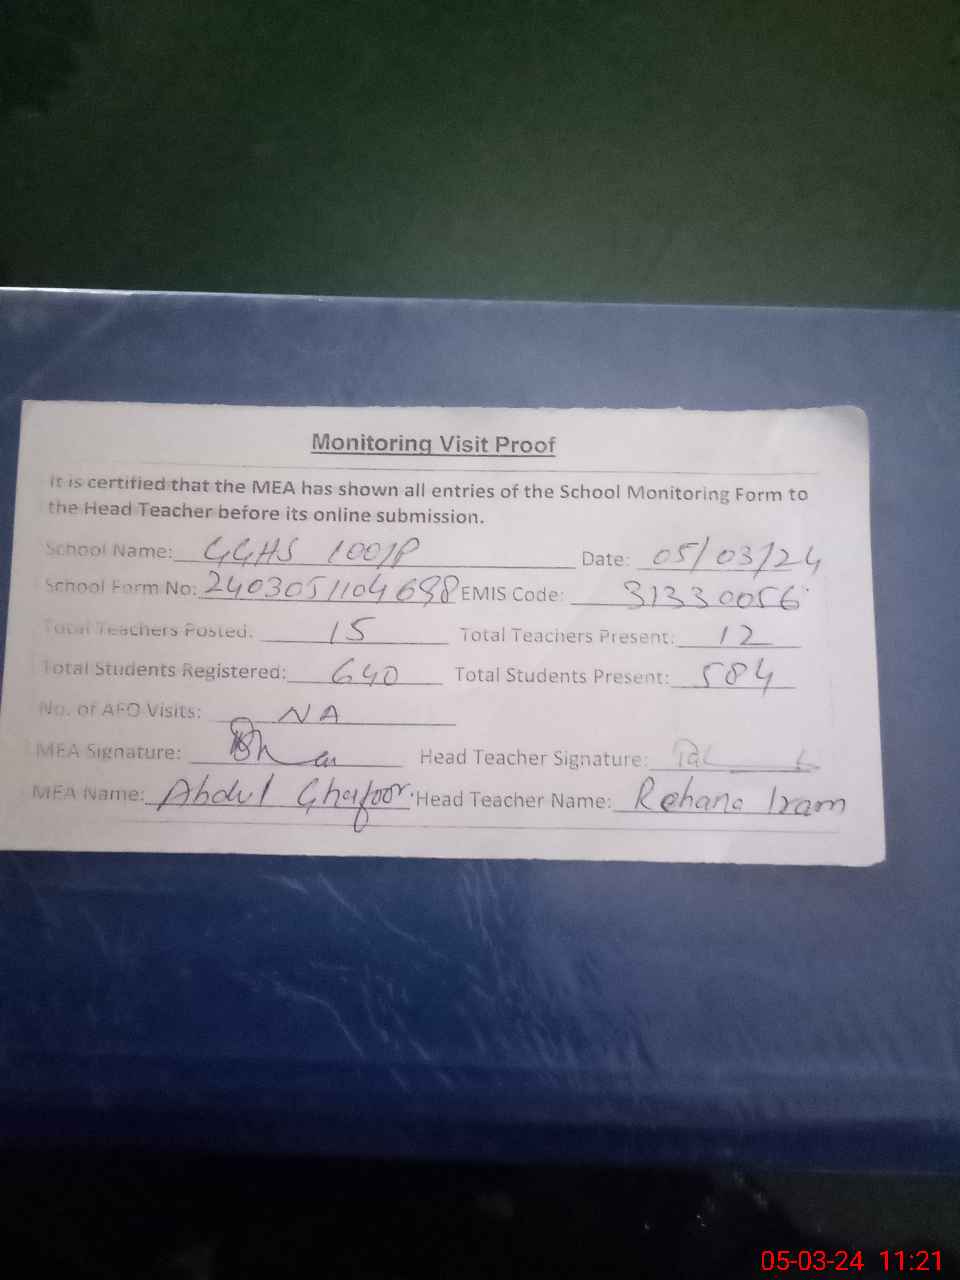 Monitoring Visit Proof
It is certified that the MEA has shown all entries of the School Monitoring Form to
the Head Teacher before its online submission.
School Name: GGHS 100/P Date: 05/03/24
School Form No: 2403051104698 EMIS Code: 31330056
Total Teachers Posted: 15 Total Teachers Present: 12
Total Students Registered: 640 Total Students Present: 584
No. of AEO Visits: NA
MEA Signature: Head Teacher Signature:
MEA Name: Abdul Ghafoor. Head Teacher Name: Rehana Iram
05-03-24 11:21